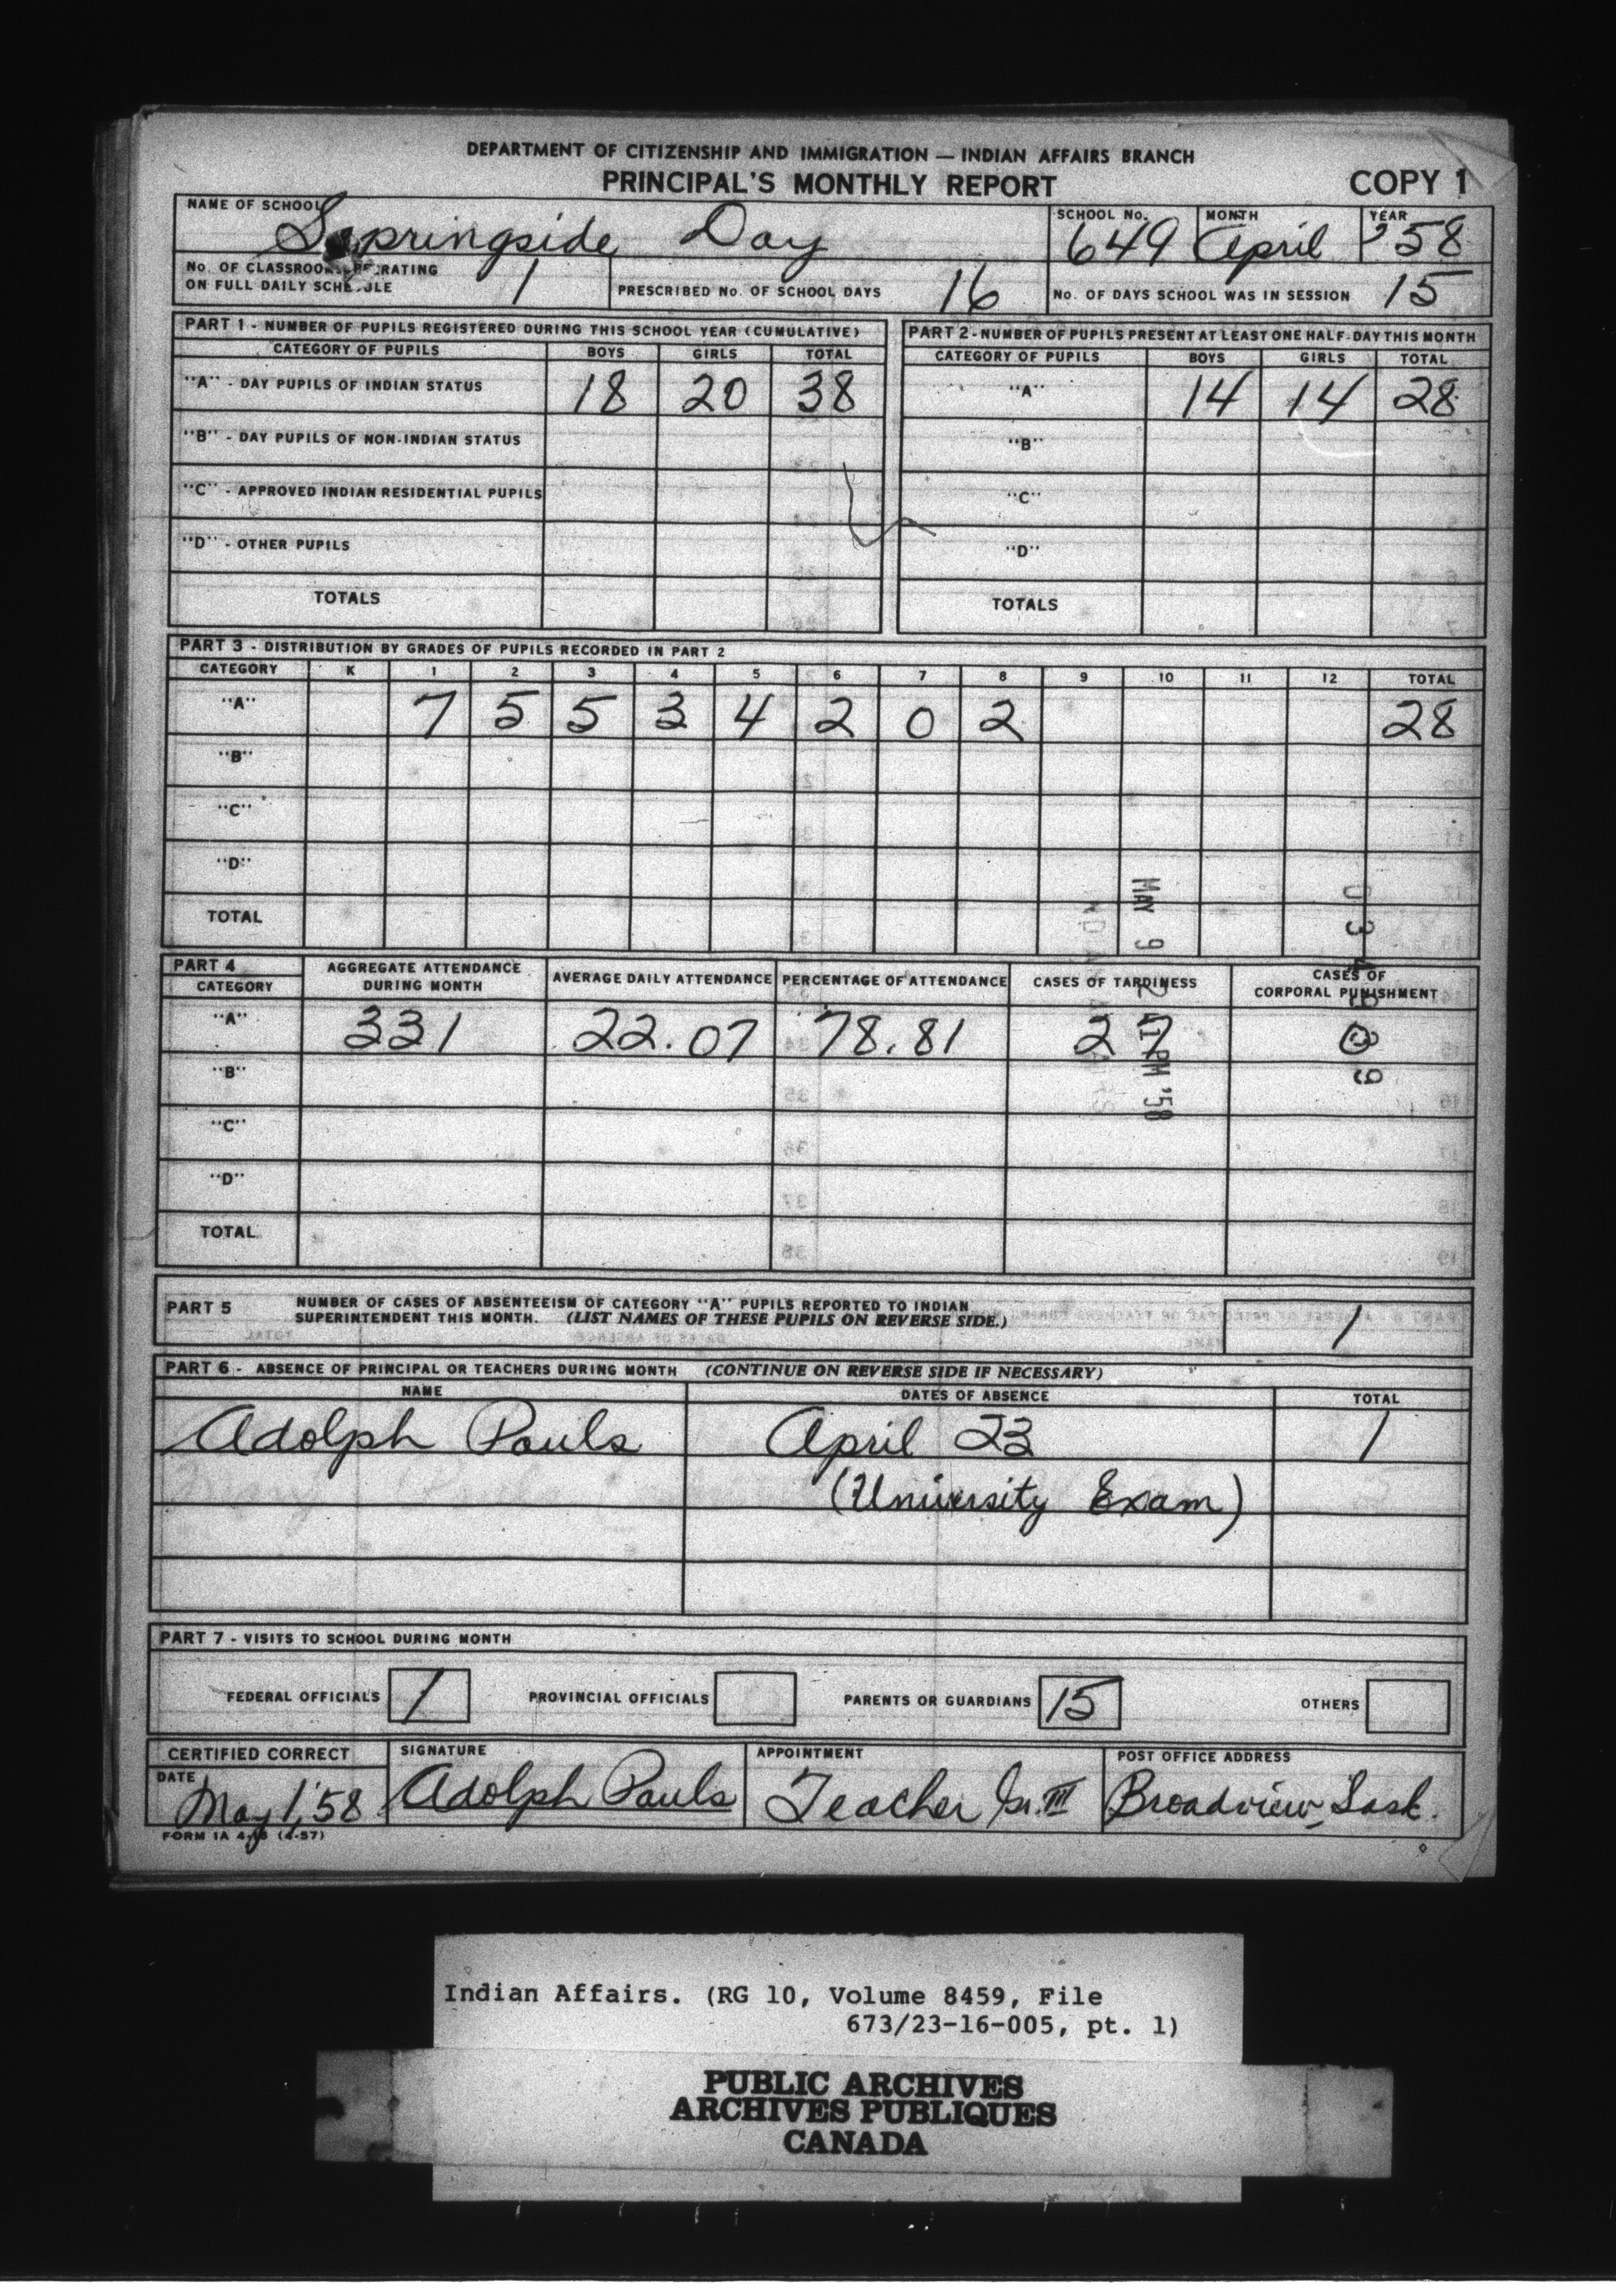 DEPARTMENT OF CITIZENSHIP AND IMMIGRATION — INDIAN AFFAIRS BRANCH
PRINCIPAL'S MONTHLY REPORT COPY 1
NAME OF SCHOOL Springside Day SCHOOL No. 649 MONTH April YEAR 58
No. OF CLASSROOMS OPERATING ON FULL DAILY SCHEDULE 1 PRESCRIBED No. OF SCHOOL DAYS 16 No. OF DAYS SCHOOL WAS IN SESSION 15
PART 1 - NUMBER OF PUPILS REGISTERED DURING THIS SCHOOL YEAR (CUMULATIVE)
CATEGORY OF PUPILS BOYS GIRLS TOTAL
"A" - DAY PUPILS OF INDIAN STATUS 18 20 38
"B" - DAY PUPILS OF NON-INDIAN STATUS
"C" - APPROVED INDIAN RESIDENTIAL PUPILS
"D" - OTHER PUPILS
TOTALS
PART 2 - NUMBER OF PUPILS PRESENT AT LEAST ONE HALF-DAY THIS MONTH
CATEGORY OF PUPILS BOYS GIRLS TOTAL
"A" 14 14 28
"B"
"C"
"D"
TOTALS
PART 3 - DISTRIBUTION BY GRADES OF PUPILS RECORDED IN PART 2
CATEGORY K 1 2 3 4 5 6 7 8 9 10 11 12 TOTAL
"A" 7 5 5 3 4 2 0 2 28
"B"
"C"
"D"
TOTAL
MAY 9 2 41 PM '58
PART 4
CATEGORY AGGREGATE ATTENDANCE DURING MONTH AVERAGE DAILY ATTENDANCE PERCENTAGE OF ATTENDANCE CASES OF TARDINESS CASES OF CORPORAL PUNISHMENT
"A" 331 22.07 78.81 27 0
"B"
"C"
"D"
TOTAL
PART 5 NUMBER OF CASES OF ABSENTEEISM OF CATEGORY "A" PUPILS REPORTED TO INDIAN
SUPERINTENDENT THIS MONTH. (LIST NAMES OF THESE PUPILS ON REVERSE SIDE.) 1
PART 6 - ABSENCE OF PRINCIPAL OR TEACHERS DURING MONTH (CONTINUE ON REVERSE SIDE IF NECESSARY)
NAME DATES OF ABSENCE TOTAL
Adolph Pauls April 23 1
(University Exam)
PART 7 - VISITS TO SCHOOL DURING MONTH
FEDERAL OFFICIALS 1 PROVINCIAL OFFICIALS PARENTS OR GUARDIANS 15 OTHERS
CERTIFIED CORRECT SIGNATURE APPOINTMENT POST OFFICE ADDRESS
DATE May 1, '58 Adolph Pauls Teacher Gr. III Broadview, Sask.
FORM IA (4-57)
Indian Affairs. (RG 10, Volume 8459, File
673/23-16-005, pt. 1)
PUBLIC ARCHIVES
ARCHIVES PUBLIQUES
CANADA